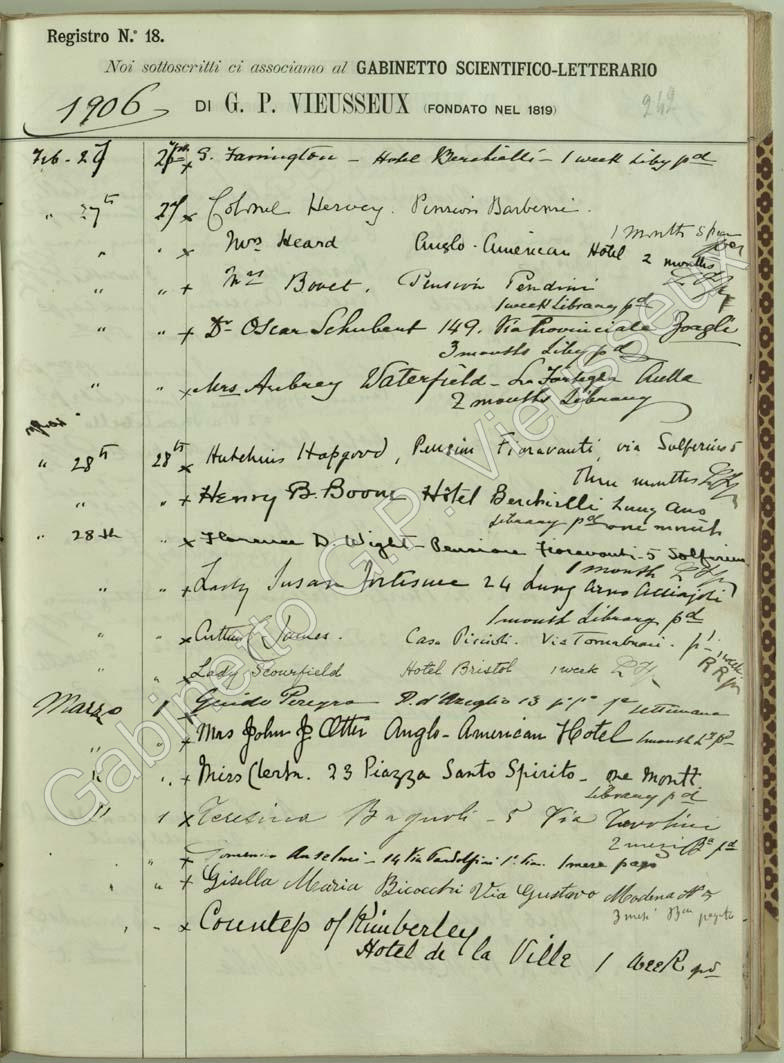 Registro N.º 18.
Noi sottoscritti ci associamo al GABINETTO SCIENTIFICO-LETTERARIO
1906 DI G. P. VIEUSSEUX (FONDATO NEL 1819) 242
Feb - 27 27 x G. Farrington - Hotel Berchielli - 1 week Liby pd
" 27th 27 x Colonel Hervey. Pension Barbensi.
1 month
" " x Mrs Heard Anglo-American Hotel 2 months
" " + Mrs Bovet, Pension Pendini
1 week Library pd
" " + Dr Oscar Schubert 149. Via Provinciale Zoagli
3 months Liby pd
" " x Mrs Aubrey Waterfield - La Fortezza Aulla
2 months Library
" 28th 28th x Hutchins Hapgood, Pension Fioravanti, via Solferino 5
Three months
" " + Henry B. Boone Hôtel Berchielli Lung Arno
Library pd one month
" 28th " x Florence D. Wight - Pensione Fioravanti - 5 Solferino
1 month
" " + Lady Susan Fortescue 24 Lung Arno Acciajoli
1 month Library pd
" " x James. Casa Via Tornabuoni.
" " x Lady Scourfield Hotel Bristol 1 week
Marzo 1 x Guido Peregro P. d'Azeglio 13 settimana
" " + Mrs John Otter Anglo-American Hotel 1 month
" " + Miss 23 Piazza Santo Spirito - one month
Library pd
" 1 x Teresina Bagnoli - 5 Via Tavolini
2 mesi
" + Domenico Anselmi - 14 Via Pandolfini 1 mese pago
" + Gisella Maria Bicocchi Via Gustavo Modena No
3 mesi
" - x Countess of Kimberley
Hotel de la Ville 1 week pd
Gabinetto G.P. Vieusseux